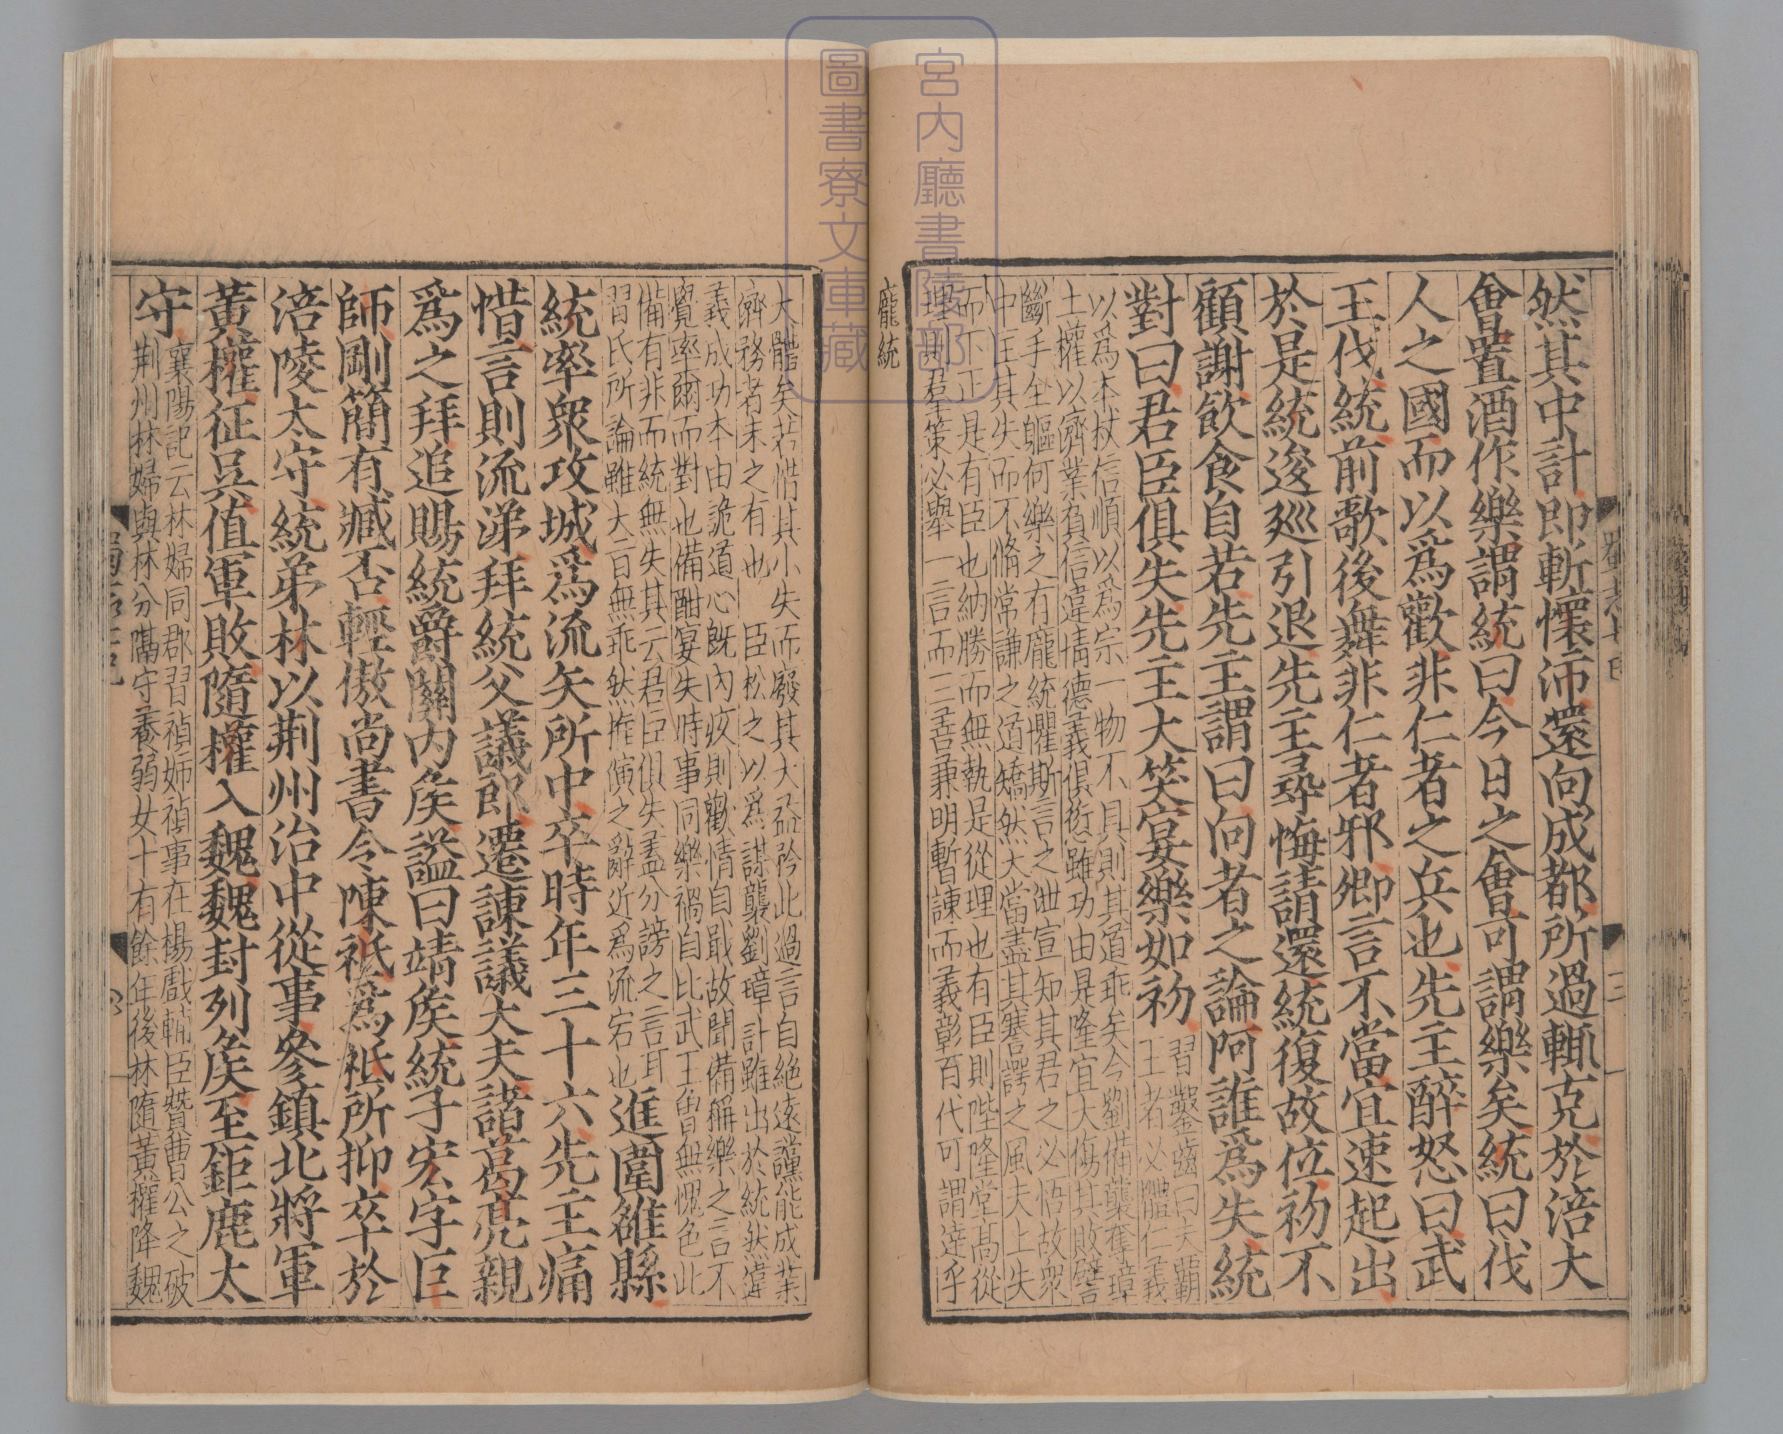 然其中計即斬懷沛還向成都所過輒克於涪大
會置酒作樂謂統曰今日之會可謂樂矣統曰伐
人之國而以爲歡非仁者之兵也先主醉怒曰武
王伐統前歌後舞非仁者邪卿言不當宜速起出
於是統逡廵引退先主尋悔請還統復故位初不
顧謝飲食自若先主謂曰向者之論阿誰爲失統
對曰君臣俱失先主大笑宴樂如初
習鑿齒曰夫霸
王者必體仁義
以爲本杖信順以爲宗一物不具則其道乖矣今劉備襲奪璋
土權以濟業負信違情德義俱愆雖功由是隆宜大傷其敗譬
斷手全軀何樂之有龐統懼斯言之泄宣知其君之必悟故衆
中匡其失而不脩常謙之道矯然大當盡其謇諤之風夫上失
而下正是有臣也納勝而無執是從理也有臣則陛隆堂高從
理則羣策必舉一言而三善兼明暫諫而義彰百代可謂達乎
龐統
大體矣若惜其小失而廢其大益矜此過言自絕遠讜能成業
濟務者未之有也 臣松之以爲謀襲劉璋計雖出於統然違
義成功本由詭道心既內疚則歡情自戢故聞備稱樂之言不
覺率爾而對也備酣宴失時事同樂禍自比武王曾無愧色此
備有非而統無失其云君臣俱失蓋分謗之言耳
習氏所論雖大百無乖然推演之辭近爲流宕也
進圍雒縣
統率衆攻城爲流矢所中卒時年三十六先主痛
惜言則流涕拜統父議郎遷諫議大夫諸葛亮親
爲之拜追賜統爵關內侯謚曰靖侯統子宏字巨
師剛簡有臧否輕傲尚書令陳祗爲祗所抑卒於
涪陵太守統弟林以荆州治中從事參鎮北將軍
黃權征吳值軍敗隨權入魏魏封列侯至鉅鹿太
守
襄陽記云林婦同郡習禎姉禎事在楊戲輔臣贊曹公之破
荆州林婦與林分隔守養弱女十有餘年後林隨黃權降魏
宮內廳書陵部
圖書寮文庫藏